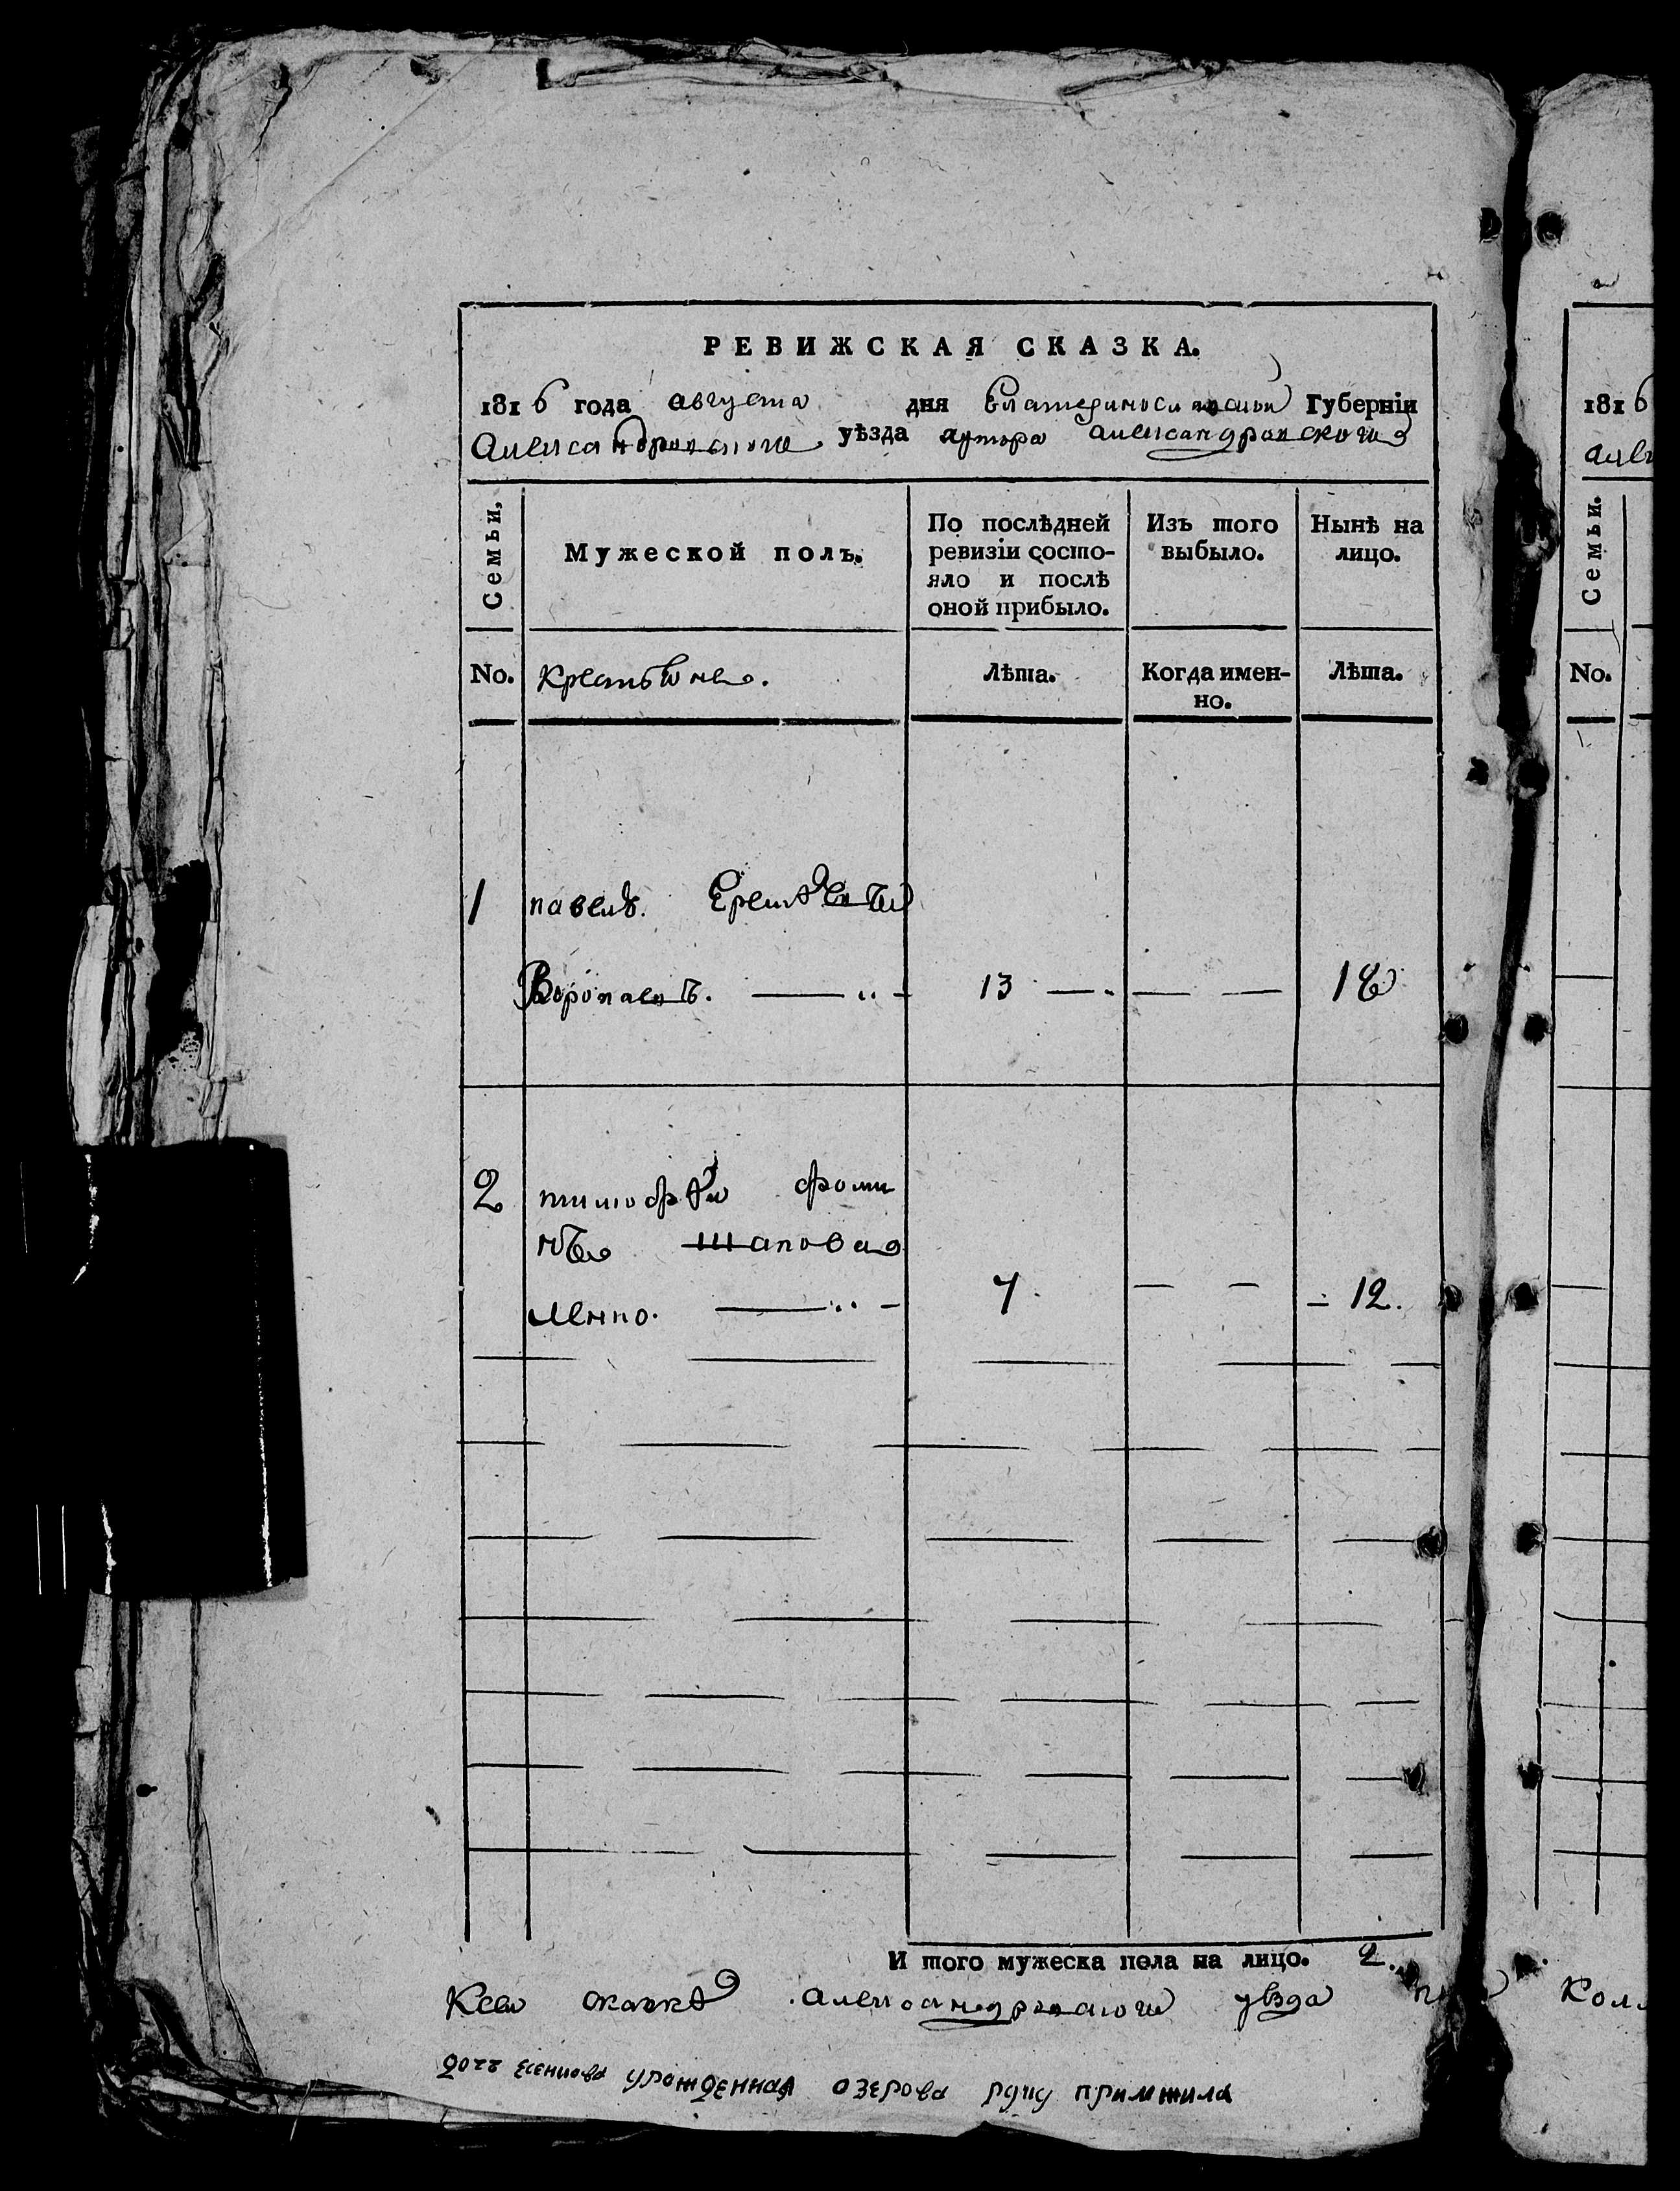 РЕВИЖСКАЯ СКАЗКА.
1816 года августа дня Екатеринославской Губернїи
Александровского уѣзда хутора Александровского
Семьи,
Мужеской полъ.
По послѣдней ревизїи состо-
яло и послѣ
оной прибыло.
Изъ того
выбыло.
Нынѣ на
лицо.
No. крестьяне.
Лѣта.
Когда имен-
но.
Лѣта.
1 павелъ. Еремѣевъ
Воропаевъ. 13 18
2 тимофѣй фоми
нъ шапова
ленко. 7 12.
И того мужеска пола на лицо. 2.
Ксей сказкѣ Александровского уѣзда
урожденная озерова руку приложила
1816
Семьи.
No.